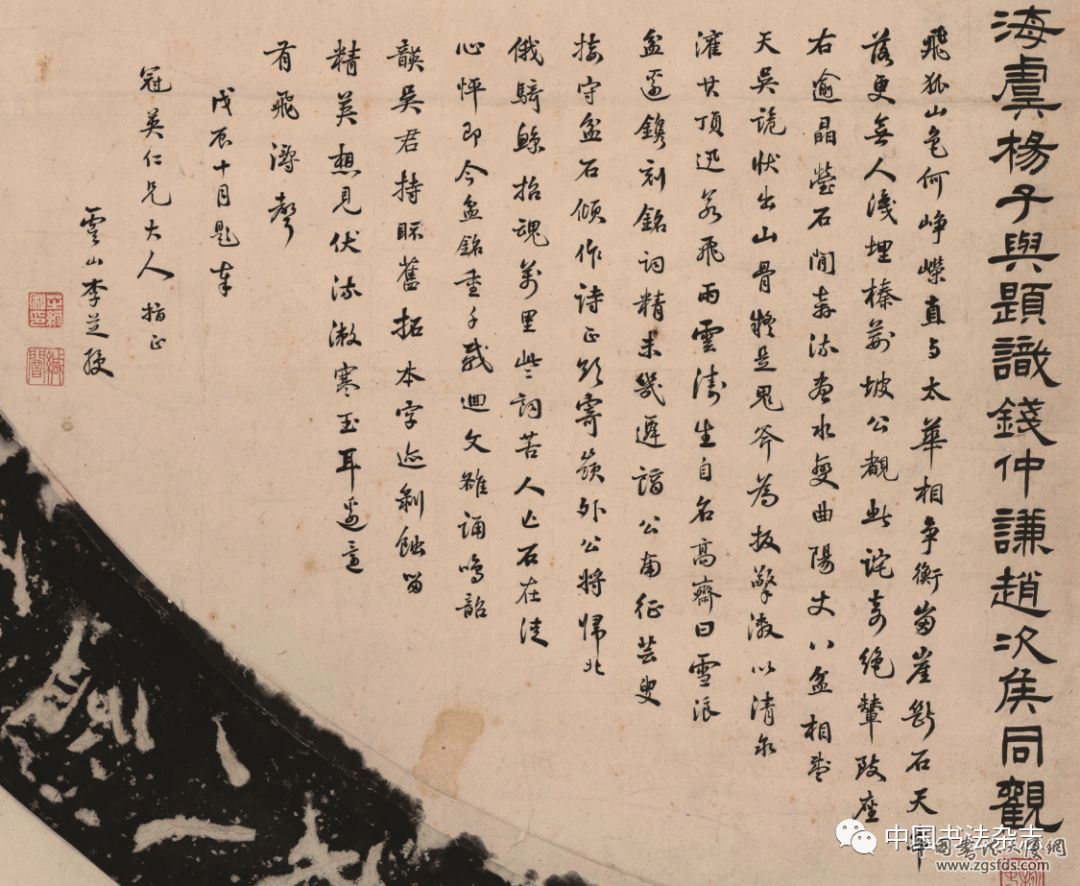 海虞楊子與題識錢仲謙趙次侯同觀
飛狐山色何崢嶸直與太華相争衡崗崖斷石天
落更無人淺埋榛荆坡公覩此詫奇絶輦致座
右逾晶瑩石間奔流畫水變曲陽丈八盆相
天吳詭狀出山骨疑是鬼斧為扱擎激以清泉
灌其頂迅若飛雨雲濤生自名高齋曰雪浪
盆邊鐫刻銘詞精未幾遷謫公南征芸叟
接守盆石傾作詩正欲寄嶺外公將歸北
俄騎鯨招魂萬里些詞苦人亡石在徒
心怦即今盆銘垂千載迴文雒誦鳴韶
韺吳君持眎舊拓本字迹剥蝕留
精英想見伏流激寒玉耳邊疑
有飛濤聲
戊辰十月題奉
冠英仁兄大人指正
虞山李芝綬
中国书法杂志
www.zgsfds.com